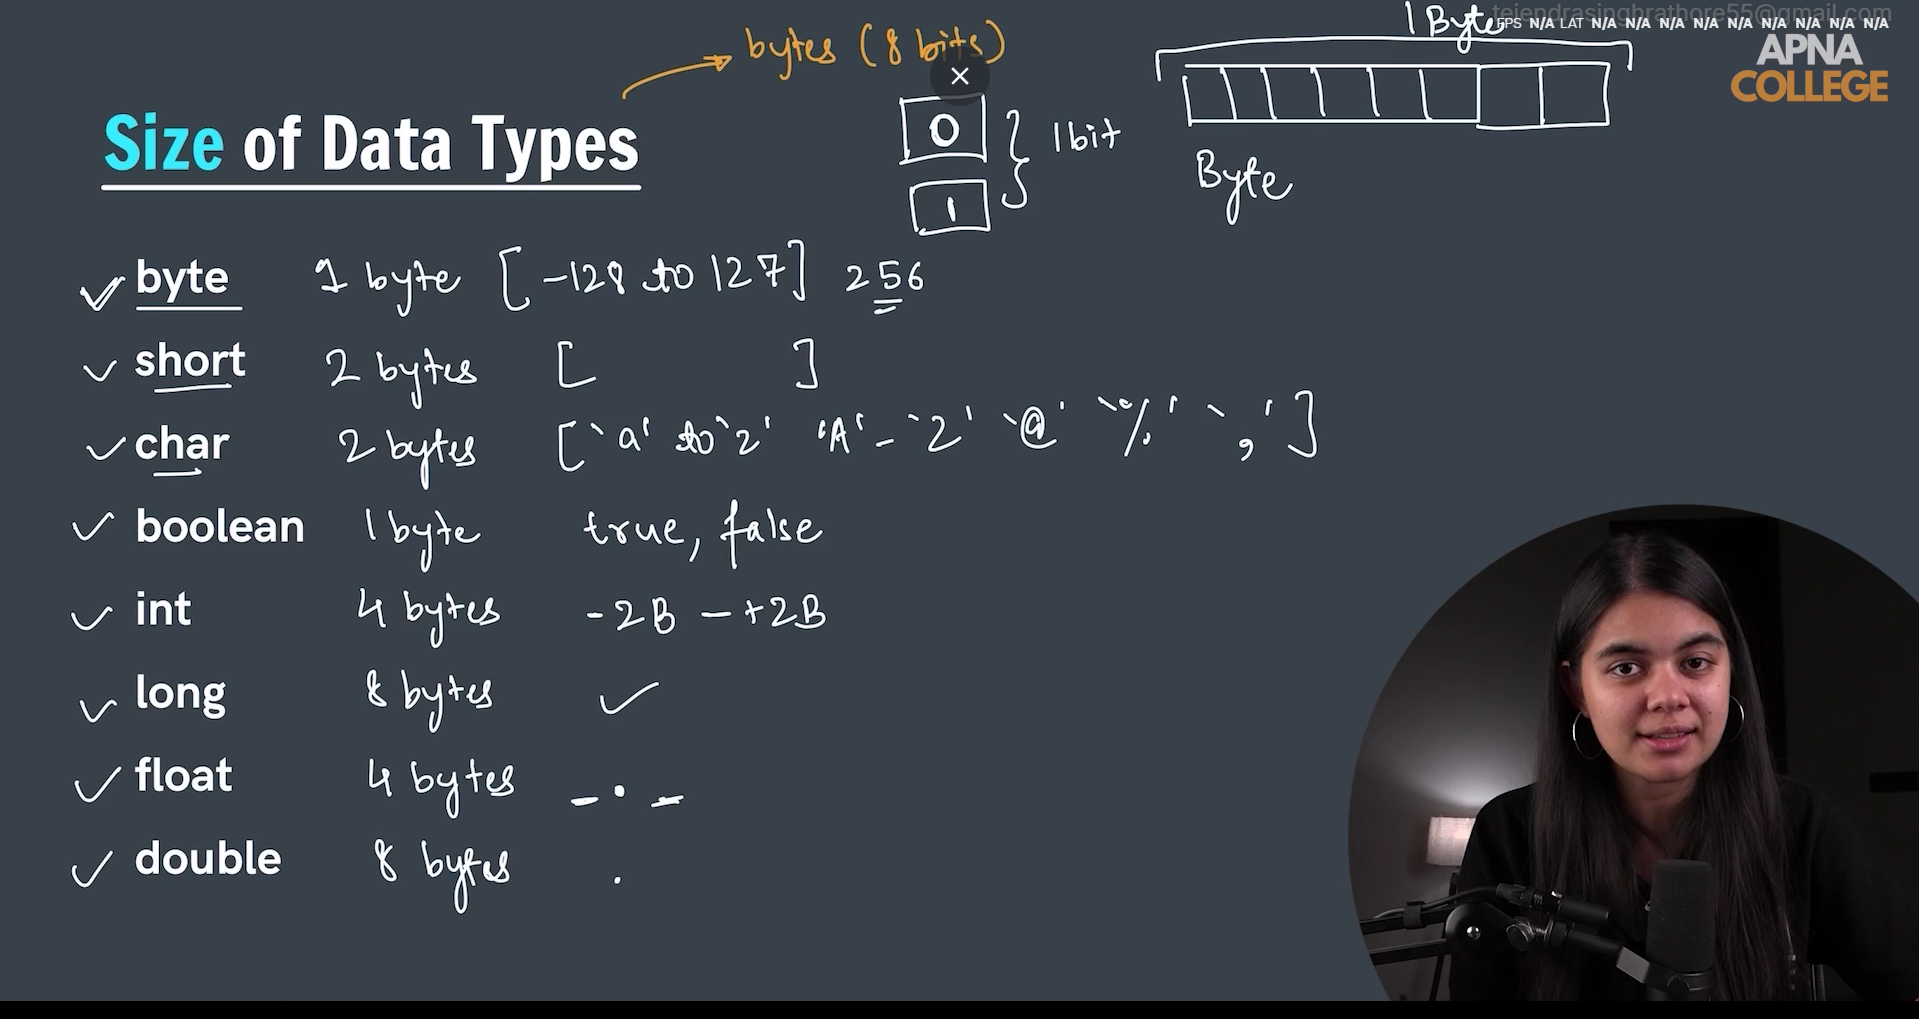 tejendrasinghrathore55@gmail.com
1 Byte
FPS N/A LAT N/A N/A N/A N/A N/A N/A N/A N/A N/A
bytes (8 bits)
APNA
COLLEGE
Size of Data Types
0
1 bit
1
Byte
byte 1 byte [-128 to 127] 256
short 2 bytes [ ]
char 2 bytes ['a' to 'z' 'A' - 'Z' '@' '%' ',']
boolean 1 byte true, false
int 4 bytes -2B - +2B
long 8 bytes ✓
float 4 bytes _ . _
double 8 bytes .